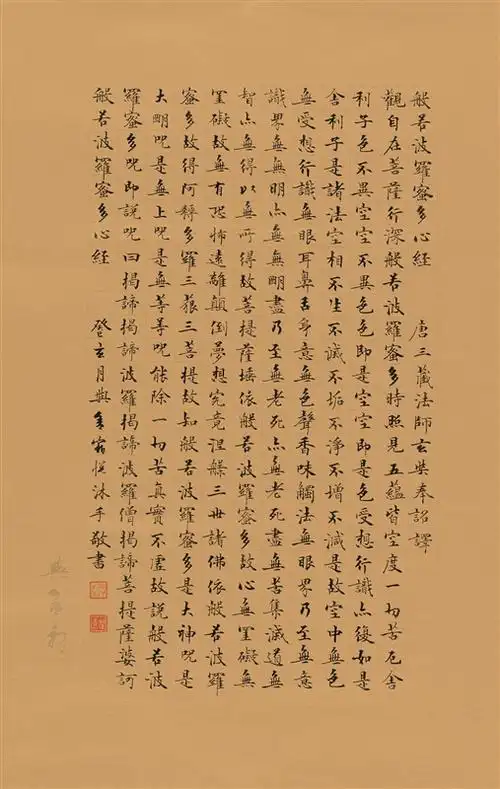 般若波羅蜜多心經 唐三藏法師玄奘奉詔譯
觀自在菩薩行深般若波羅蜜多時照見五蘊皆空度一切苦厄舍
利子色不異空空不異色色即是空空即是色受想行識亦復如是
舍利子是諸法空相不生不滅不垢不淨不增不減是故空中無色
無受想行識無眼耳鼻舌身意無色聲香味觸法無眼界乃至無意
識界無無明亦無無明盡乃至無老死亦無老死盡無苦集滅道無
智亦無得以無所得故菩提薩埵依般若波羅蜜多故心無罣礙無
罣礙故無有恐怖遠離顛倒夢想究竟涅槃三世諸佛依般若波羅
蜜多故得阿耨多羅三藐三菩提故知般若波羅蜜多是大神咒是
大明咒是無上咒是無等等咒能除一切苦真實不虛故說般若波
羅蜜多咒即說咒曰揭諦揭諦波羅揭諦波羅僧揭諦菩提薩婆訶
般若波羅蜜多心經 癸亥月 沐手敬書